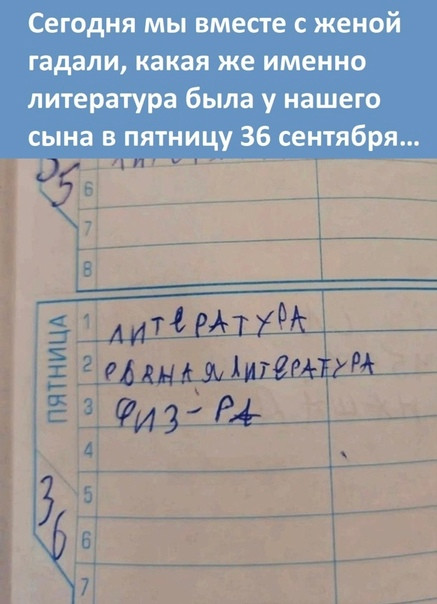 Сегодня мы вместе с женой
гадали, какая же именно
литература была у нашего
сына в пятницу 36 сентября...
5
6
7
8
ПЯТНИЦА
1 ЛИТЕРАТУРА
2 ЛИТЕРАТУРА
3 ФИЗ-РА
4
36
5
6
7